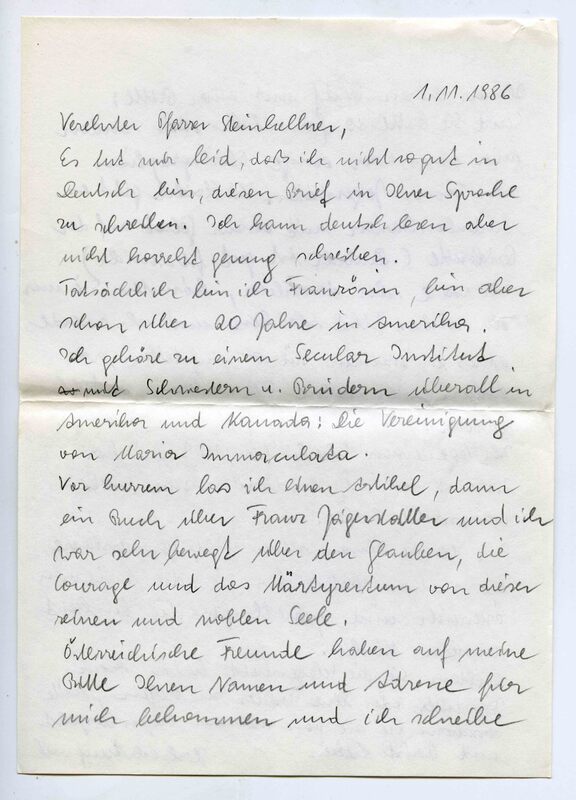 1.11.1986
Verehrter Pfarrer Steinkellner,
Es tut mir leid, daß ich nicht so gut in
Deutsch bin, diesen Brief in Ihrer Sprache
zu schreiben. Ich kann deutsch lesen aber
nicht korrekt genung schreiben.
Tatsächlich bin ich Französin, bin aber
schon über 20 Jahre in Amerika.
Ich gehöre zu einem Secular Institut
mit Schwestern u. Brüdern überall in
Amerika und Kanada: Die Vereinigung
von Maria Immaculata.
Vor kurzem las ich einen Artikel, dann
ein Buch über Franz Jägerstätter und ich
war sehr bewegt über den Glauben, die
Courage und das Märtyrertum von dieser
reinen und noblen Seele.
Österreichische Freunde haben auf meine
Bitte Ihren Namen und Adresse für
mich bekommen und ich schreibe